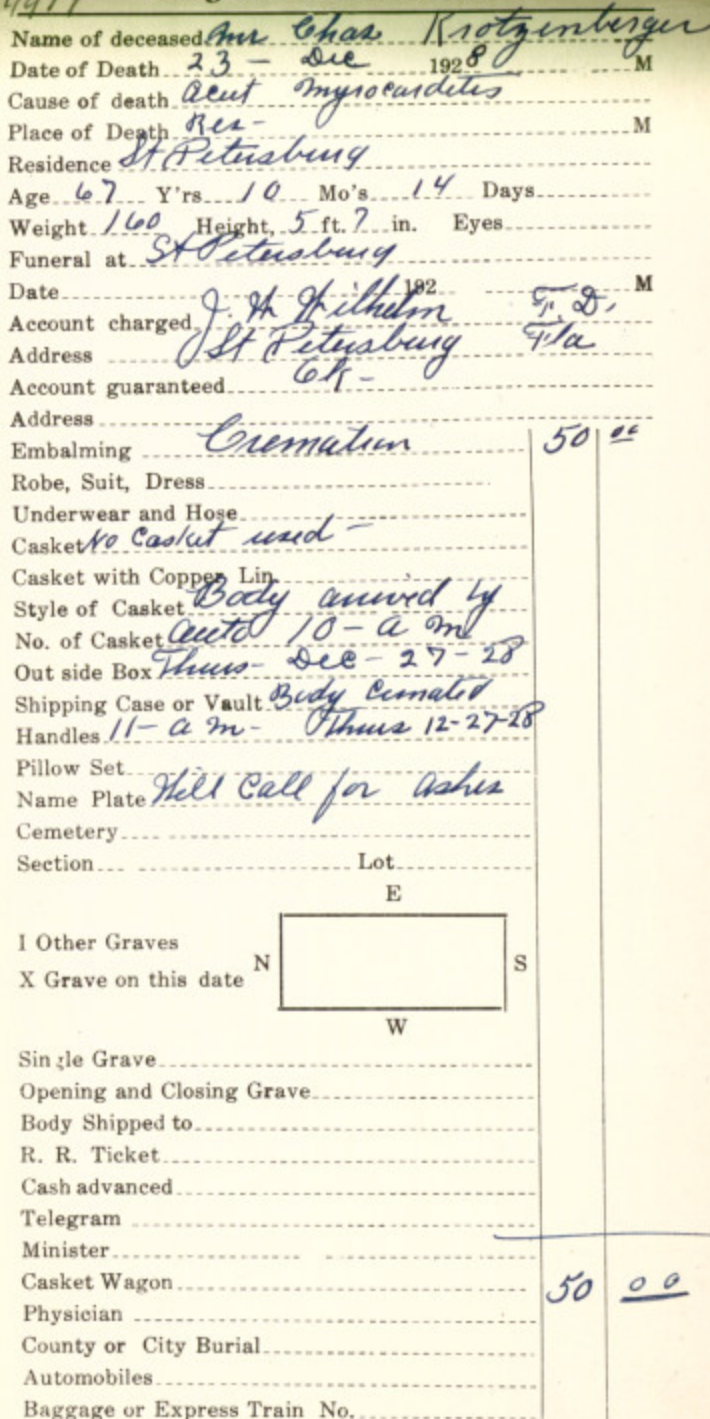 Name of deceased Mr Chas Krotzenberger
Date of Death 23 - Dec 1928 M
Cause of death acut myrocarditis
Place of Death Res- M
Residence St Petersburg
Age 67 Y'rs 10 Mo's 14 Days
Weight 160 Height, 5 ft. 7 in. Eyes
Funeral at St Petersburg
Date 192 M
Account charged J. H. Wilhelm F. D.
Address St Petersburg Fla
Account guaranteed
Address
Embalming Cremation 50 00
Robe, Suit, Dress
Underwear and Hose
Casket No Casket used -
Casket with Copper Lin.
Style of Casket Body arrived by
No. of Casket auto 10 - a m
Out side Box Thurs - Dec - 27 - 28
Shipping Case or Vault Body Cremated
Handles 11 - a m - Thurs 12-27-28
Pillow Set
Name Plate Will Call for ashes
Cemetery
Section Lot
E
I Other Graves
N S
X Grave on this date
W
Single Grave
Opening and Closing Grave
Body Shipped to
R. R. Ticket
Cash advanced
Telegram
Minister
Casket Wagon 50 00
Physician
County or City Burial
Automobiles
Baggage or Express Train No.